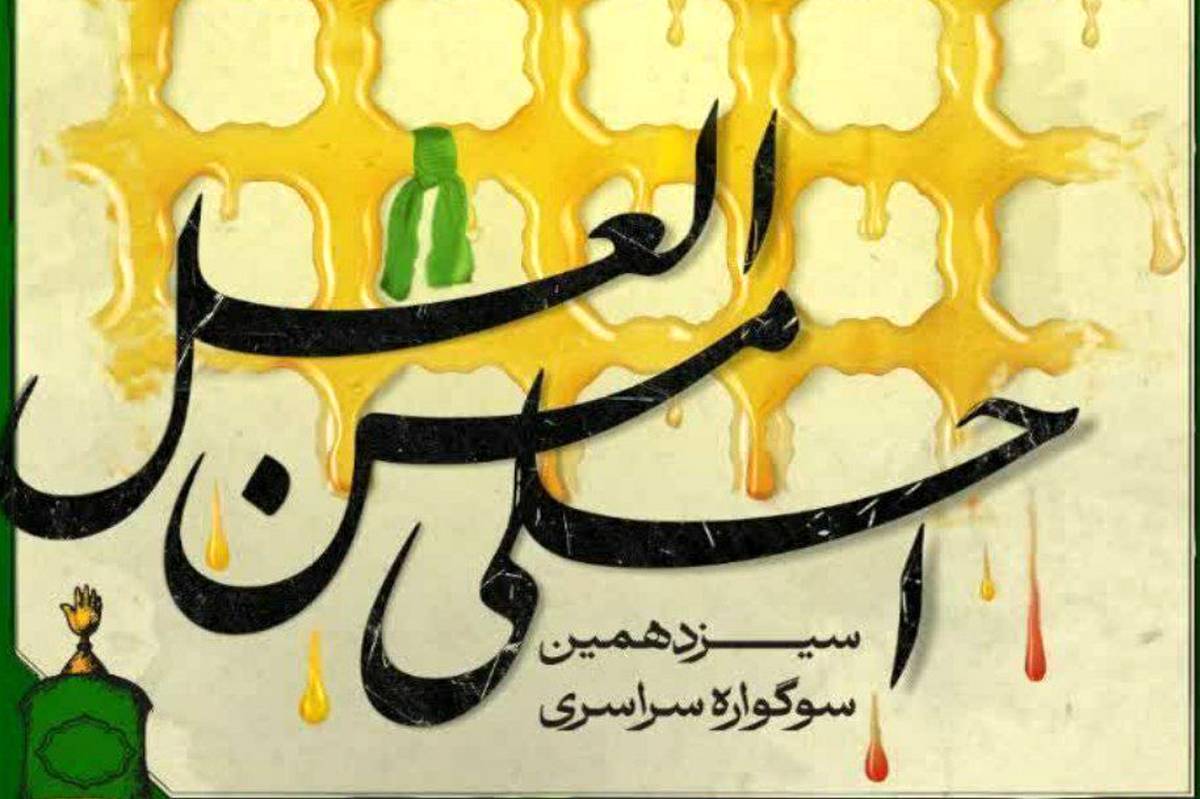 احلی من العسل
سیزدهمین
سوگواره سراسری